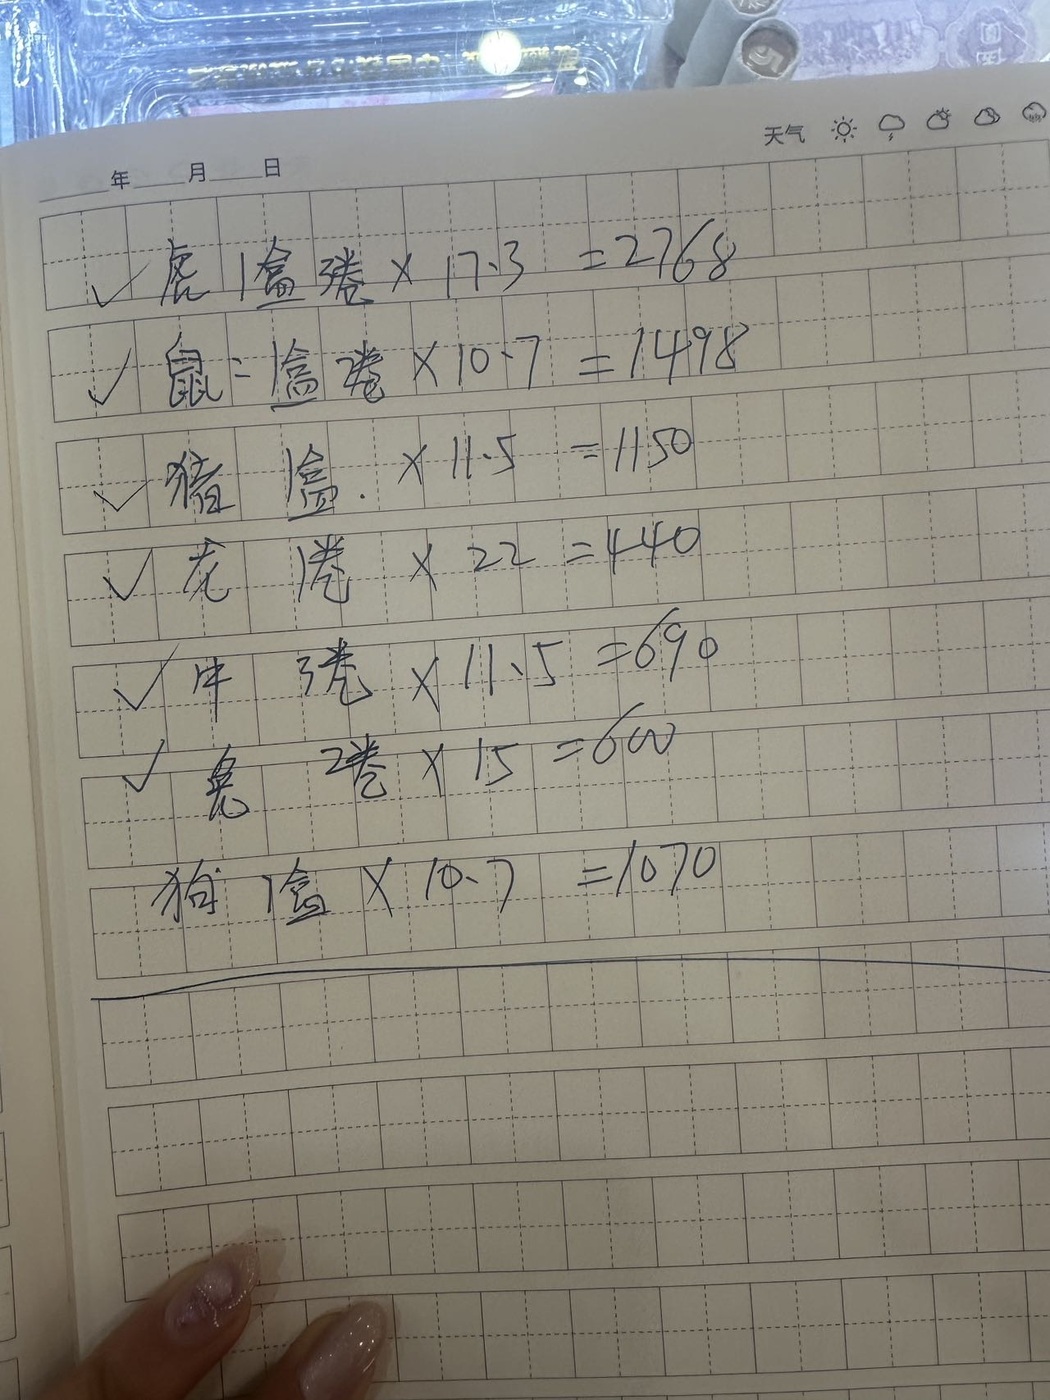 年 月 日 天气
✓虎 1盒3卷×17.3 =2768
✓鼠:1盒2卷×10.7 =1498
✓猪 1盒.×11.5 =1150
✓龙 1卷×22 =440
✓牛 3卷×11.5 =690
✓兔 2卷×15 =600
狗 1盒×10.7 =1070